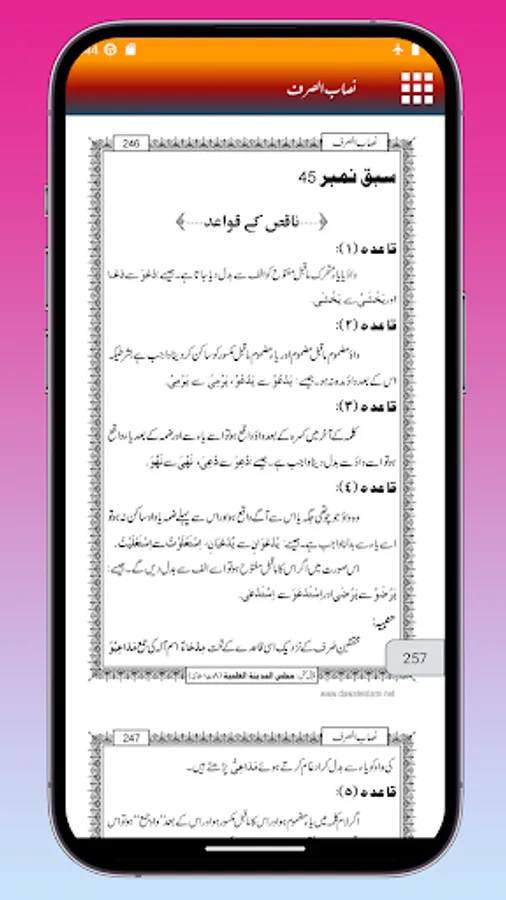 44
نصاب الصرف
246
نصاب الصرف
سبق نمبر 45
﴿----ناقص کے قواعد----﴾
قاعدہ (۱):
واؤ یا یاء متحرک ماقبل مفتوح کو الف سے بدل دیا جاتا ہے۔ جیسے: دَعَوَ سے دَعَا
اور یَخْشَیُ سے یَخْشٰی۔
قاعدہ (۲):
واؤ مضموم ماقبل مضموم اور یاء مضموم ماقبل مکسور کو ساکن کر دینا واجب ہے بشرطیکہ
اس کے بعد واؤ مدہ نہ ہو۔ جیسے: یَدْعُوُ سے یَدْعُوْ، یَرْمِیُ سے یَرْمِیْ۔
قاعدہ (۳):
کلمہ کے آخر میں کسرہ کے بعد واؤ واقع ہو تو اسے یاء سے اور ضمہ کے بعد یاء واقع
ہو تو اسے واؤ سے بدل دینا واجب ہے۔ جیسے: دُعِوَ سے دُعِیَ، نَهُیَ سے نَهُوَ۔
قاعدہ (٤):
وہ واؤ جو چوتھی جگہ یا اس سے آگے واقع ہو اور اس سے پہلے ضمہ یا واؤ ساکن نہ ہو تو
اسے یاء سے بدلنا واجب ہے۔ جیسے: یُدْعَوَانِ سے یُدْعَیَانِ، اِسْتَعْلَوْتُ سے اِسْتَعْلَیْتُ۔
اس صورت میں اگر اس کا ماقبل مفتوح ہو تو اسے الف سے بدل دیں گے۔ جیسے:
یَرْضَوُ سے یَرْضٰی اور اِسْتَدْعَوَ سے اِسْتَدْعٰی۔
تنبیہ:
محققین صرف کے نزدیک اسی قاعدے کے تحت مِدْعَاءٌ اسم آلہ کی جمع مَدَاعِیْوُ
257
پیش کش: مجلس المدینة العلمیة (دعوت اسلامی)
www.dawateislami.net
247
نصاب الصرف
کی واؤ کو یاء سے بدل کر ادغام کرتے ہوئے مَدَاعِیُّ پڑھتے ہیں۔
قاعدہ (٥):
اگر لام کلمہ میں یاء مضموم ہو اور اس کا ماقبل مکسور ہو اور اس کے بعد "واؤ جمع" ہو تو اس